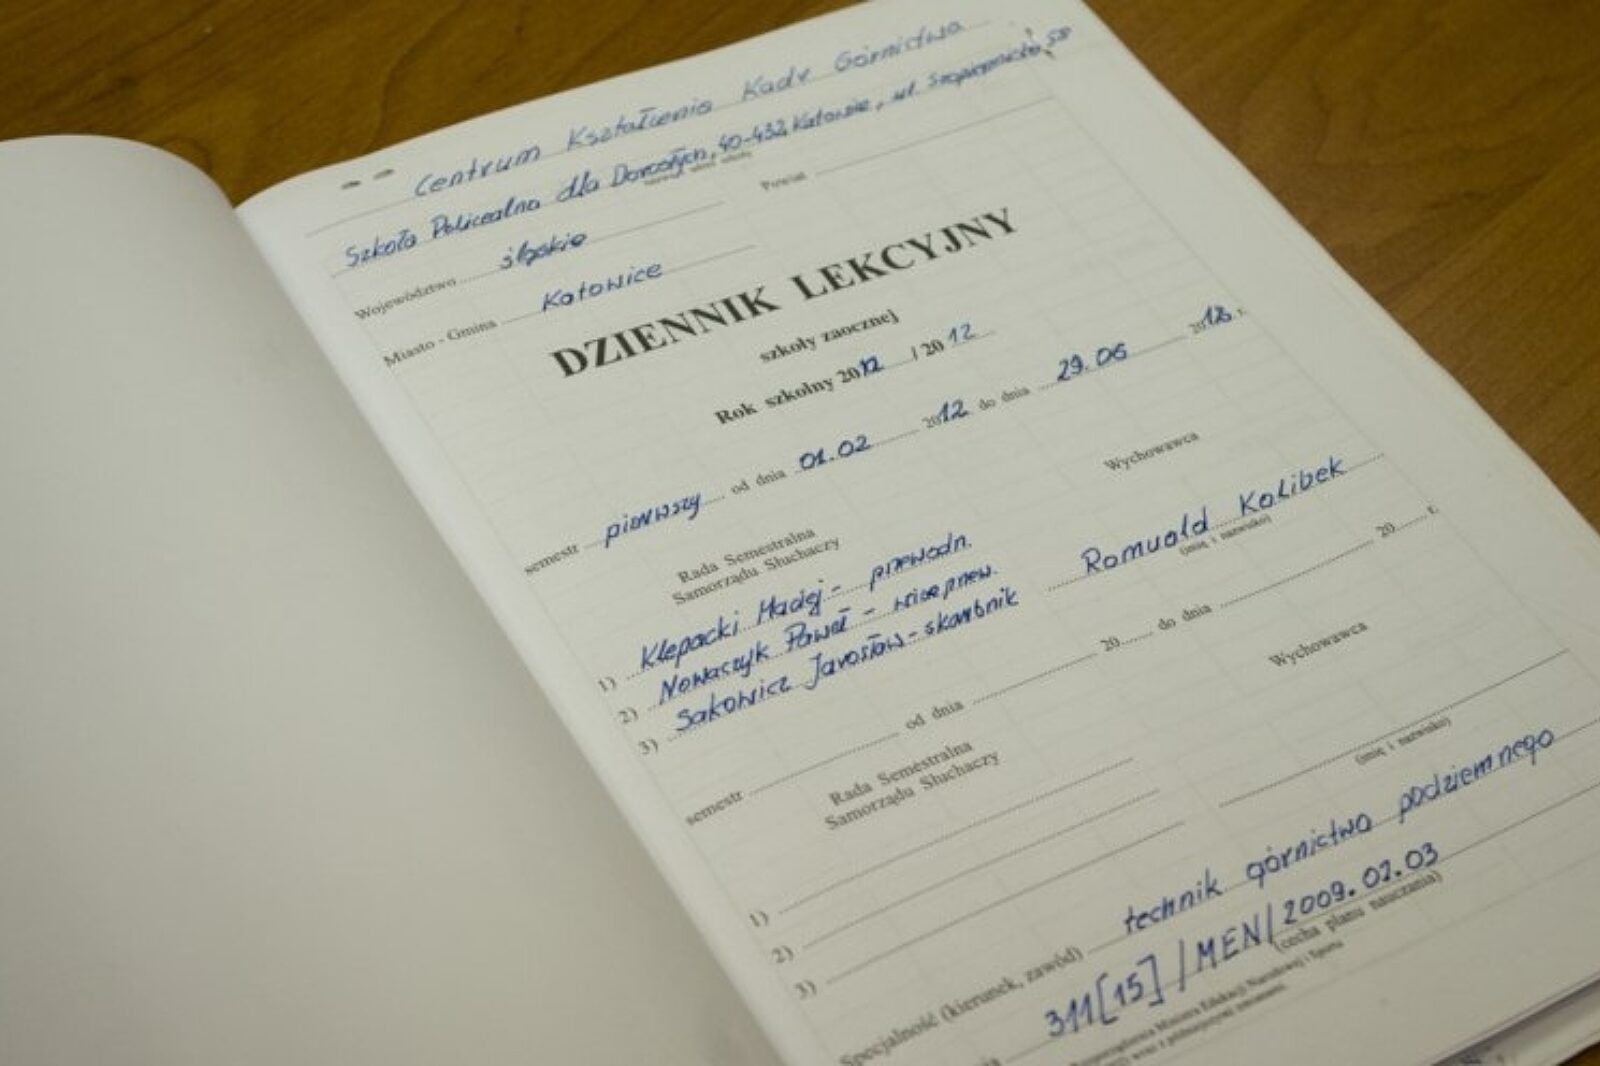 Centrum Kształcenia Kadr Górnictwa
Szkoła Policealna dla Dorosłych, 40-432 Katowice, ul. Szopienicka 58
Województwo śląskie Powiat
Miasto - Gmina Katowice
DZIENNIK LEKCYJNY
szkoły zaocznej
Rok szkolny 2012 / 2012
semestr pierwszy od dnia 01.02 2012 do dnia 29.06 2012 r.
Rada Semestralna
Samorządu Słuchaczy
Wychowawca
1) Klepacki Maciej - przewodn.
2) Nowaczyk Paweł - wiceprzew.
3) Sakowicz Jarosław - skarbnik
Romuald Kalibek
(imię i nazwisko)
semestr od dnia 20 do dnia 20 r.
Rada Semestralna
Samorządu Słuchaczy
Wychowawca
1)
2)
3)
(imię i nazwisko)
Specjalność (kierunek, zawód) technik górnictwa podziemnego
311[15] / MEN / 2009.02.03
(cecha planu nauczania)
Ministra Edukacji Narodowej i Sportu